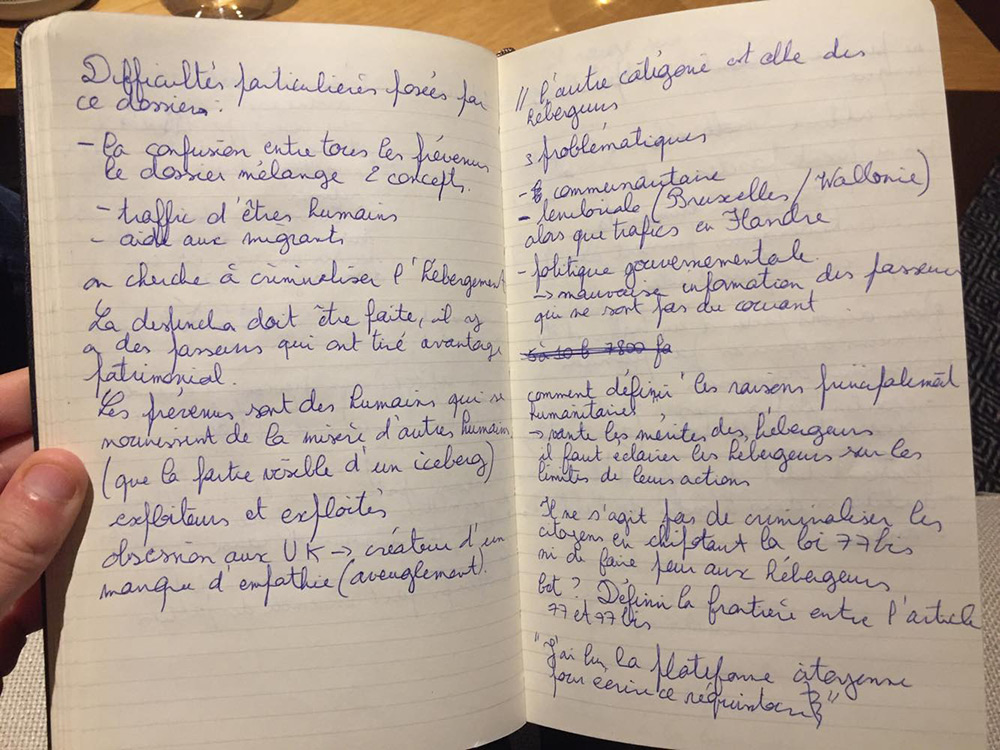 Difficultés particulières posées par
ce dossier :
- la confusion entre tous les prévenus
le dossier mélange 2 concepts.
- traffic d'êtres humains
- aide aux migrants
on cherche à criminaliser l'hébergement
La desfincha doit être faite, il y
a des passeurs qui ont tiré avantage
patrimonial.
Les prévenus sont des humains qui se
nourrissent de la misère d'autres humains
(que la partie visible d'un iceberg)
exploiteurs et exploités
obsession aux UK → créateur d'un
manque d'empathie (aveuglement).
// l'autre catégorie est celle des
hébergeurs
3 problématiques
- communautaire
- territoriale (Bruxelles / Wallonie)
alors que trafics en Flandre
- politique gouvernementale.
→ mauvaise information des passeurs
qui ne sont pas du courant
comment définir les raisons principalement
humanitaires ?
→ vante les mérites des hébergeurs
il faut éclairer les hébergeurs sur les
limites de leurs actions
Il ne s'agit pas de criminaliser les
citoyens en chipotant la loi 77 bis
ni de faire peur aux hébergeurs
but ? Définir la frontière entre l'article
77 et 77 bis
"J'ai lu la plateforme citoyenne
pour écrire ce réquisitoire"